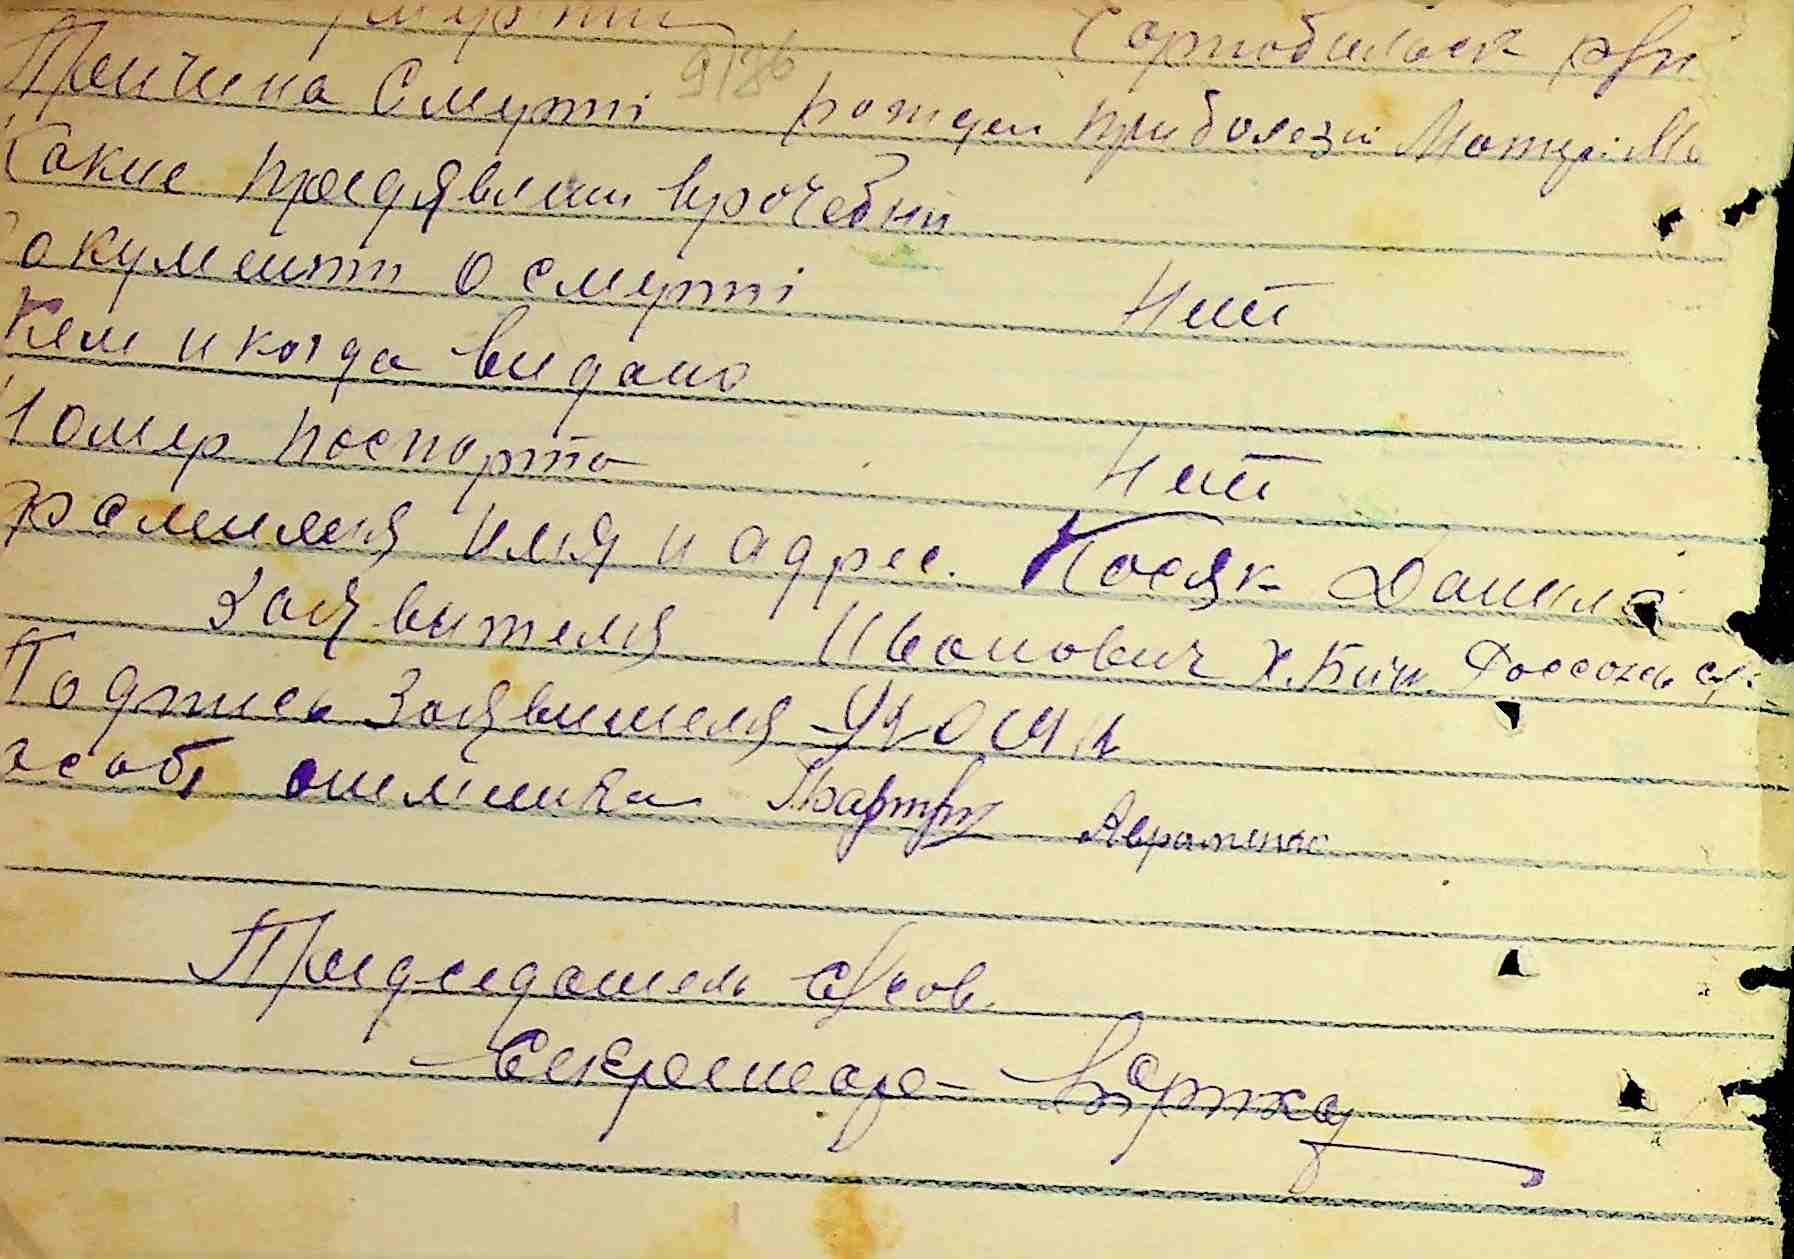 смерти Чорнобильск рай
Причина Смерті 9/26 рожден при болезні Матері
Какие предявлени врочебни
документи о смерти Нит
Кем и когда видано
Номер поспорта Нит
фамилия имя и адрес. Косяк Данило
Заявителя Иванович х. Бичк
Подпись Заявителя
особі отметка Авраменко
Председатель с/сов.
Секретарь